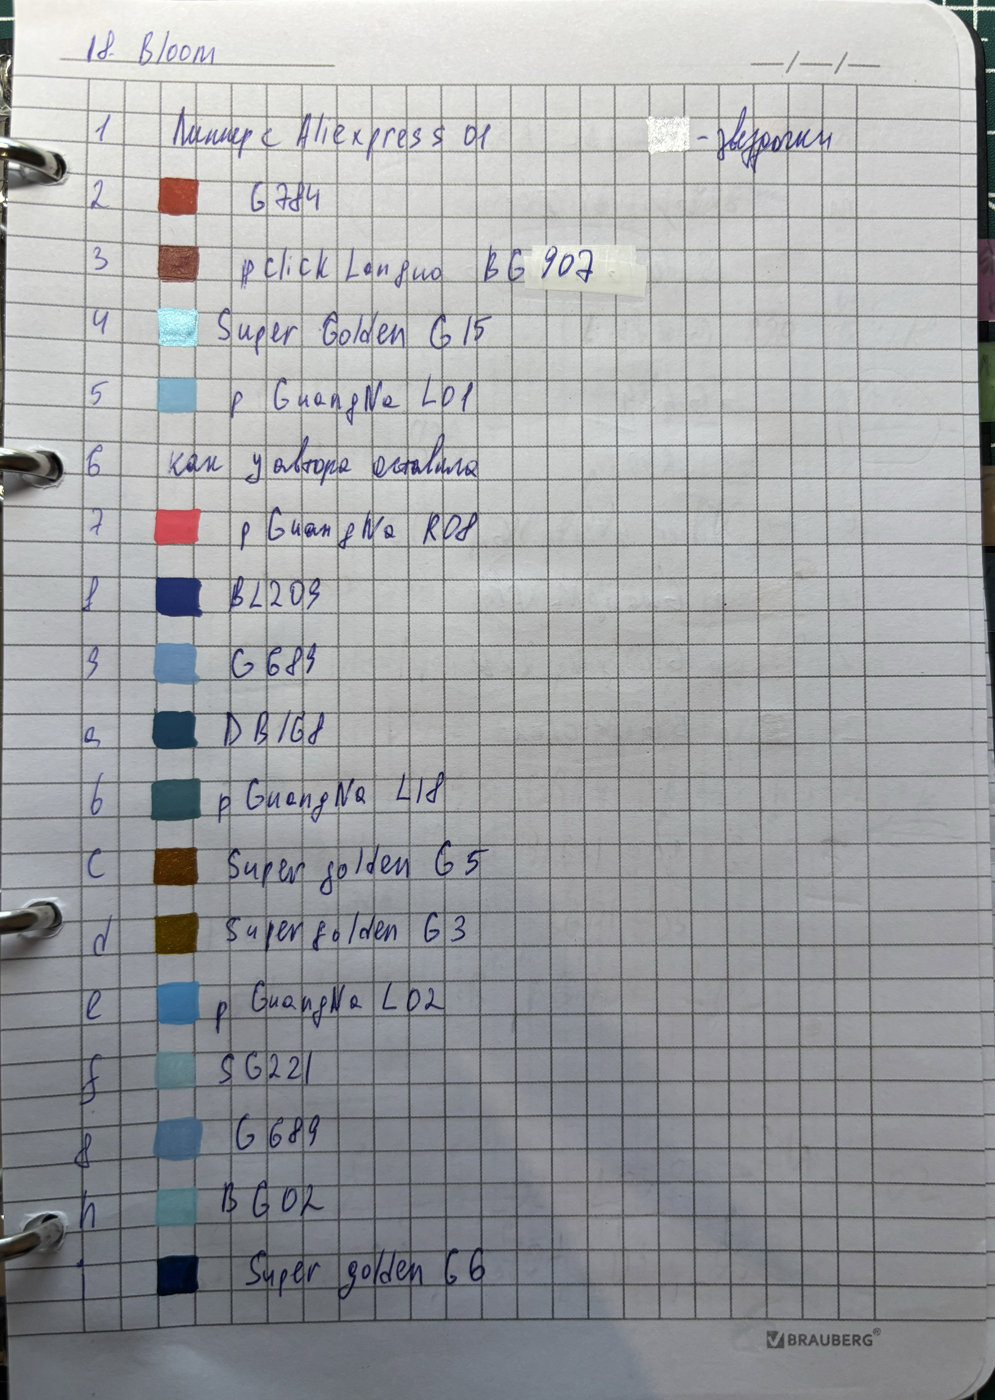 18. Bloom
__/__/__
1 Линнер с Aliexpress 01 - звездочки
2 G784
3 p Click Languo BG 907
4 Super Golden G15
5 p GuangNa L01
6 как у автора оставила
7 p GuangNa R08
8 BL209
9 G689
a DB168
b p GuangNa L18
c Super golden G5
d Super golden G3
e p GuangNa L02
f SG221
g G689
h BG02
i Super golden G6
BRAUBERG®